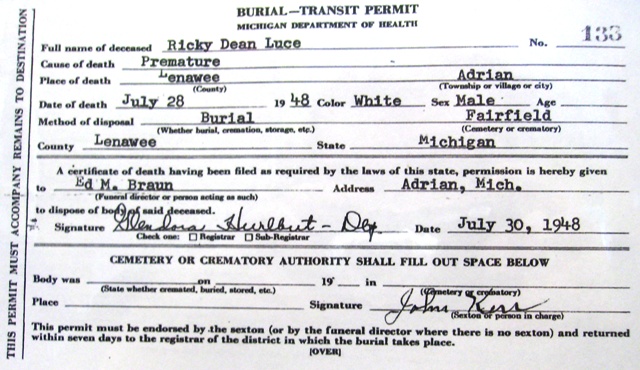 BURIAL—TRANSIT PERMIT
MICHIGAN DEPARTMENT OF HEALTH
133
Full name of deceased Ricky Dean Luce No.
Cause of death Premature
Place of death Lenawee Adrian
(County) (Township or village or city)
Date of death July 28 1948 Color White Sex Male Age
Method of disposal Burial Fairfield
(Whether burial, cremation, storage, etc.) (Cemetery or crematory)
County Lenawee State Michigan
A certificate of death having been filed as required by the laws of this state, permission is hereby given
to Ed M. Braun Address Adrian, Mich.
(Funeral director or person acting as such)
to dispose of body of said deceased.
Signature Glendora Hurlbut - Dep Date July 30, 1948
Check one: ☐ Registrar ☐ Sub-Registrar
CEMETERY OR CREMATORY AUTHORITY SHALL FILL OUT SPACE BELOW
Body was on 19 in
(State whether cremated, buried, stored, etc.) (Cemetery or crematory)
Place Signature John Kerr
(Sexton or person in charge)
This permit must be endorsed by the sexton (or by the funeral director where there is no sexton) and returned
within seven days to the registrar of the district in which the burial takes place.
[OVER]
THIS PERMIT MUST ACCOMPANY REMAINS TO DESTINATION